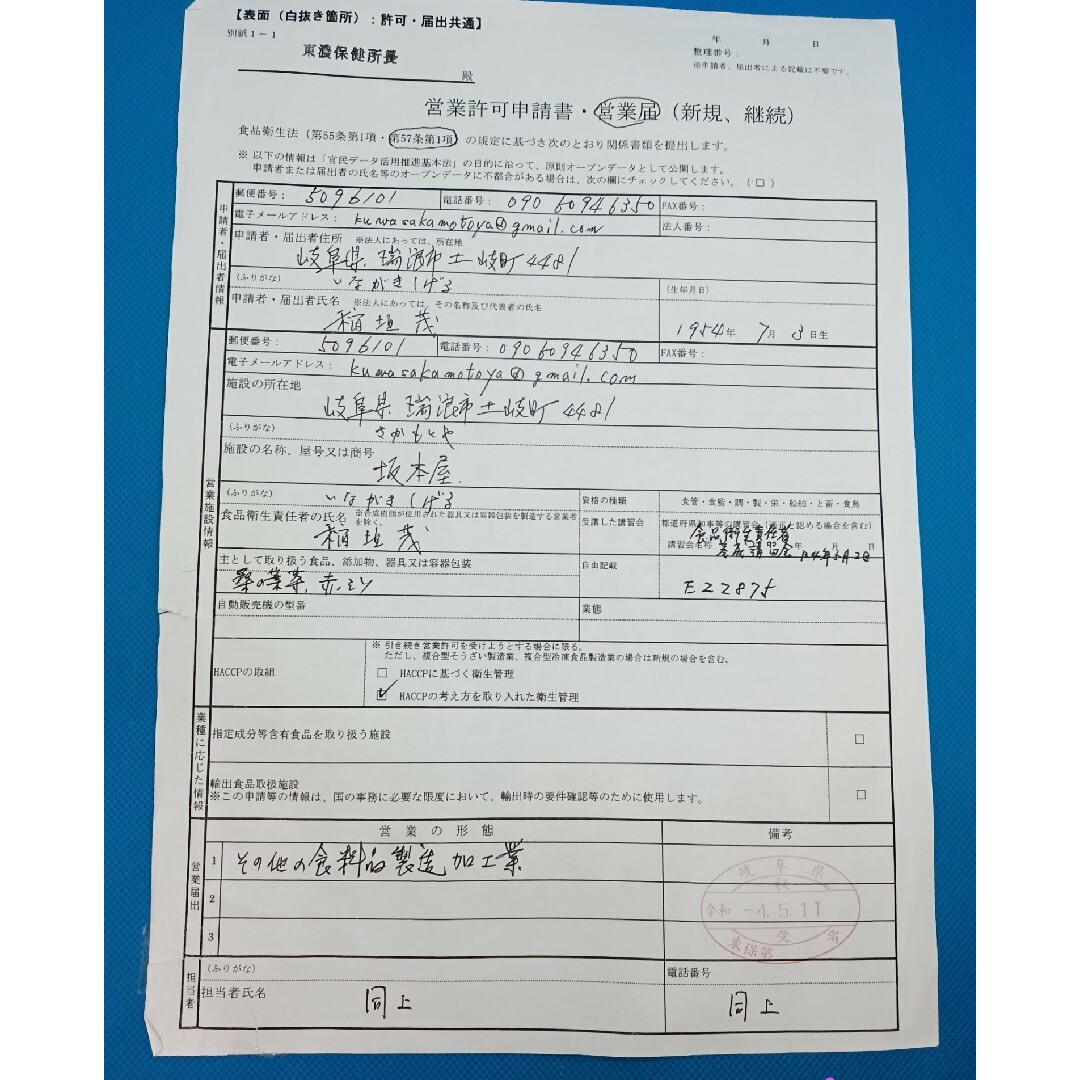 【表面（白抜き箇所）：許可・届出共通】
別紙1－1
年　月　日
東濃保健所長
殿
整理番号：
※申請者、届出者による記載は不要です。
営業許可申請書・営業届（新規、継続）
食品衛生法（第55条第1項・第57条第1項）の規定に基づき次のとおり関係書類を提出します。
※ 以下の情報は「官民データ活用推進基本法」の目的に沿って、原則オープンデータとして公開します。
申請者または届出者の氏名等のオープンデータに不都合がある場合は、次の欄にチェックしてください。（□）
申請者・届出者情報
郵便番号：5096101 電話番号：090 60946350 FAX番号：
電子メールアドレス：kuwasakamotoya@gmail.com 法人番号：
申請者・届出者住所 ※法人にあっては、所在地
岐阜県瑞浪市土岐町4481
（ふりがな） いながきしげる （生年月日）
申請者・届出者氏名 ※法人にあっては、その名称及び代表者の氏名
稲垣茂 1954年 7月 3日生
営業施設情報
郵便番号：5096101 電話番号：09060946350 FAX番号：
電子メールアドレス：kuwasakamotoya@gmail.com
施設の所在地
岐阜県瑞浪市土岐町4481
（ふりがな） さかもとや
施設の名称、屋号又は商号
坂本屋
（ふりがな） いながきしげる 資格の種類 食管・食監・調・製・栄・船舶・と畜・食鳥
食品衛生責任者の氏名 ※合成樹脂が使用された器具又は容器包装を製造する営業者を除く。
稲垣茂
受講した講習会 都道府県知事等の講習会（適正と認める場合を含む）
食品衛生責任者
講習会名称 年 月 日
主として取り扱う食品、添加物、器具又は容器包装 自由記載
桑の葉茶、赤 E22875
自動販売機の型番 業態
HACCPの取組
※ 引き続き営業許可を受けようとする場合に限る。
ただし、複合型そうざい製造業、複合型冷凍食品製造業の場合は新規の場合を含む。
□ HACCPに基づく衛生管理
☑ HACCPの考え方を取り入れた衛生管理
業種に応じた情報
指定成分等含有食品を取り扱う施設 □
輸出食品取扱施設
※この申請等の情報は、国の事務に必要な限度において、輸出時の要件確認等のために使用します。 □
営業届出
営業の形態 備考
1 その他の食料品製造加工業
2
3
岐阜県
収
令和 －4.5.11
受
東保第 号
担当者
（ふりがな） 電話番号
担当者氏名
同上 同上